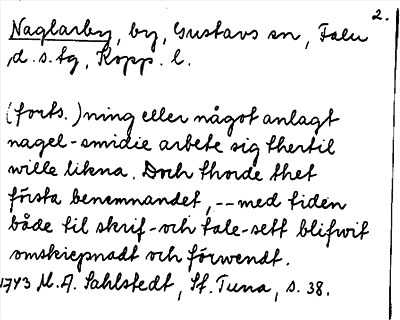 2.
Naglarby, by, Gustavs sn, Falu
d. s. tg, Kopp. l.
(forts.) ning eller något anlagt
nagel-smidie arbete sig thertil
wille likna. Doch thorde thet
första benemnandet, -- med tiden
både til skrif- och tale-sett blifwit
omskiepnadt och förwendt.
1743 M. A. Sahlstedt, St. Tuna, s. 38.